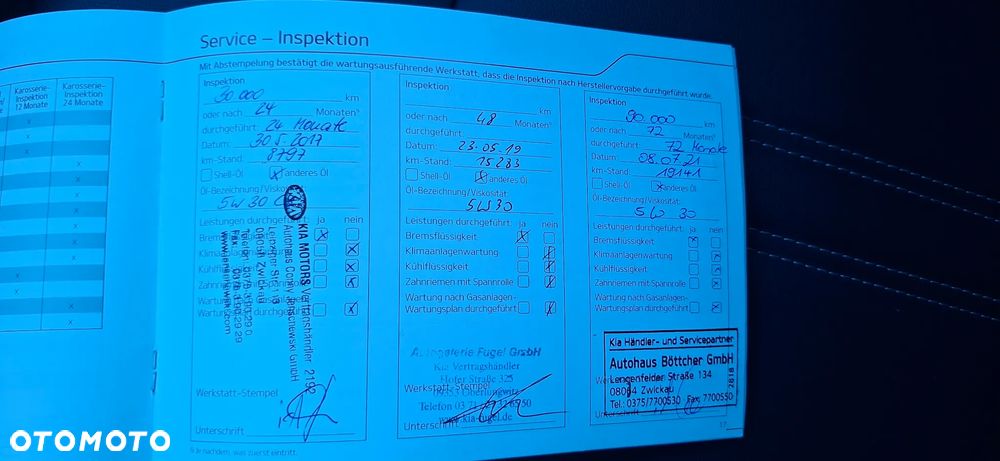 Service – Inspektion
Mit Abstempelung bestätigt die wartungsausführende Werkstatt, dass die Inspektion nach Herstellervorgabe durchgeführt wurde.
Karosserie-
Inspektion
12 Monate
Karosserie-
Inspektion
24 Monate
Inspektion
30.000 km
oder nach 24 Monaten
durchgeführt: 24 Monate
Datum: 30.5.2017
km-Stand: 8797
Shell-Öl x anderes Öl
Öl-Bezeichnung/Viskosität:
5W30
Leistungen durchgeführt: ja nein
Wartung nach Gasanlagen-
Wartungsplan durchgeführt
KIA MOTORS Vertragshändler 2192
Leipziger Str. 118
08058 Zwickau
Werkstatt-Stempel
Unterschrift
Inspektion
km
oder nach 48 Monaten
durchgeführt:
Datum: 23.05.19
km-Stand: 15233
Shell-Öl x anderes Öl
Öl-Bezeichnung/Viskosität:
5W30
Leistungen durchgeführt: ja nein
Bremsflüssigkeit
Klimaanlagenwartung
Kühlflüssigkeit
Zahnriemen mit Spannrolle
Wartung nach Gasanlagen-
Wartungsplan durchgeführt
Autogalerie Fugel GmbH
Kia Vertragshändler
Hofer Straße 325
09353 Oberlungwitz
www.kia-fugel.de
Werkstatt-Stempel
Unterschrift
Inspektion
90.000 km
oder nach 72 Monaten
durchgeführt: 72 Monate
Datum: 08.07.21
km-Stand: 19141
Shell-Öl x anderes Öl
Öl-Bezeichnung/Viskosität:
5W30
Leistungen durchgeführt: ja nein
Bremsflüssigkeit
Klimaanlagenwartung
Kühlflüssigkeit
Zahnriemen mit Spannrolle
Wartung nach Gasanlagen-
Wartungsplan durchgeführt
Kia Händler- und Servicepartner
Autohaus Böttcher GmbH
Lengenfelder Straße 134
08064 Zwickau
Tel.: 0375/7700530 Fax: 7700550
2618
Unterschrift
17
Je nachdem, was zuerst eintritt.
OTOMOTO